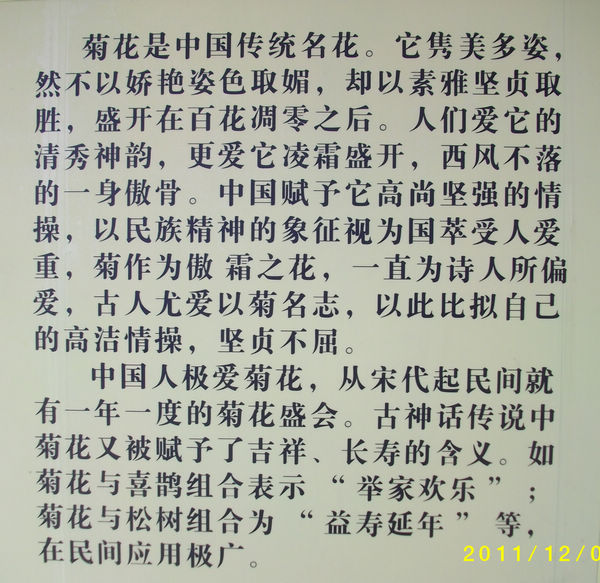 菊花是中国传统名花。它隽美多姿，
然不以娇艳姿色取媚，却以素雅坚贞取
胜，盛开在百花凋零之后。人们爱它的
清秀神韵，更爱它凌霜盛开，西风不落
的一身傲骨。中国赋予它高尚坚强的情
操，以民族精神的象征视为国萃受人爱
重，菊作为傲 霜之花，一直为诗人所偏
爱，古人尤爱以菊名志，以此比拟自己
的高洁情操，坚贞不屈。
中国人极爱菊花，从宋代起民间就
有一年一度的菊花盛会。古神话传说中
菊花又被赋予了吉祥、长寿的含义。如
菊花与喜鹊组合表示“举家欢乐”；
菊花与松树组合为“益寿延年”等，
在民间应用极广。
2011/12/0